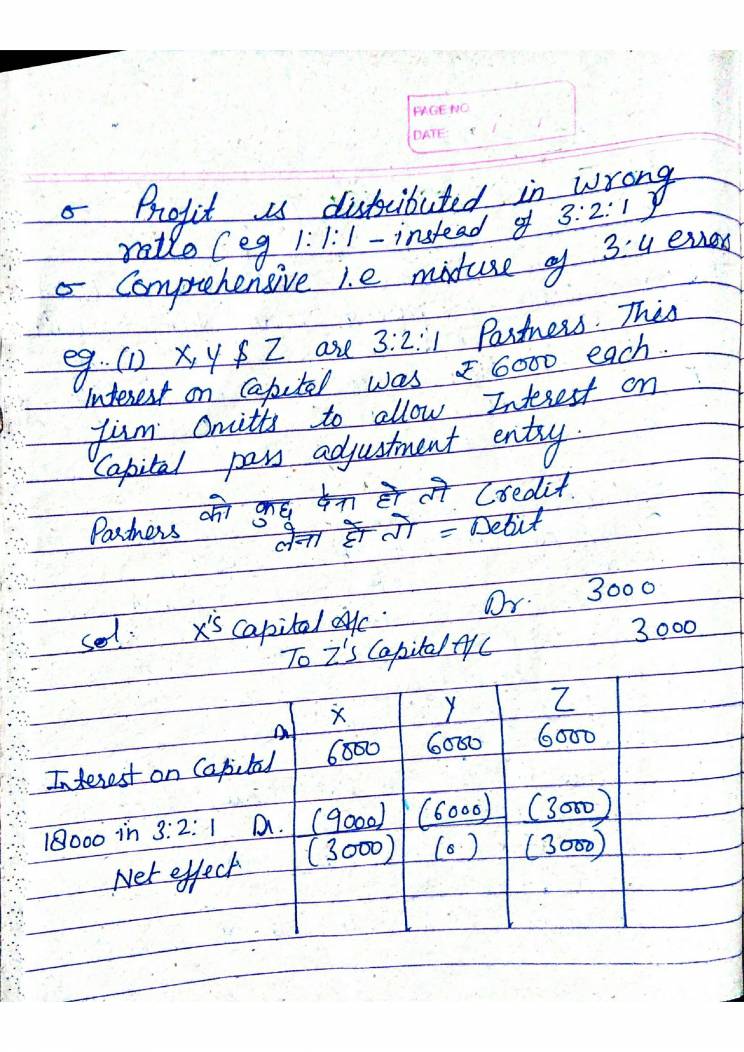 PAGE NO.
DATE: / /
o- Profit is distributed in wrong
ratio (eg 1:1:1 - instead of 3:2:1)
o- Comprehensive i.e mixture of 3:4 error
eg.. (1) X, Y $ Z are 3:2:1 Partners. This
Interest on capital was ₹ 6000 each.
firm Omitts to allow Interest on
Capital pass adjustment entry.
Partners को कुछ देना हो तो Credit.
लेना हो तो = Debit
Sol: X's Capital A/c. Dr. 3000
To Z's Capital A/C 3000
X Y Z
Interest on Capital 6000 6000 6000
18000 in 3:2:1 Dr. (9000) (6000) (3000)
Net effect (3000) (0) (3000)